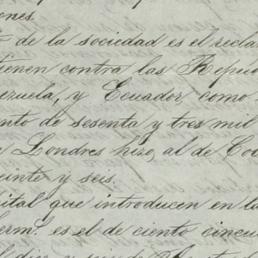 ones.
de la sociedad es el recla
tienen contra las Repu
ezuela, y Ecuador como
nto de sesenta y tres mil
Londres hiso al de Co
einte y seis.
ital que introducen en la
erm.ᵃ es el de ciento cincu